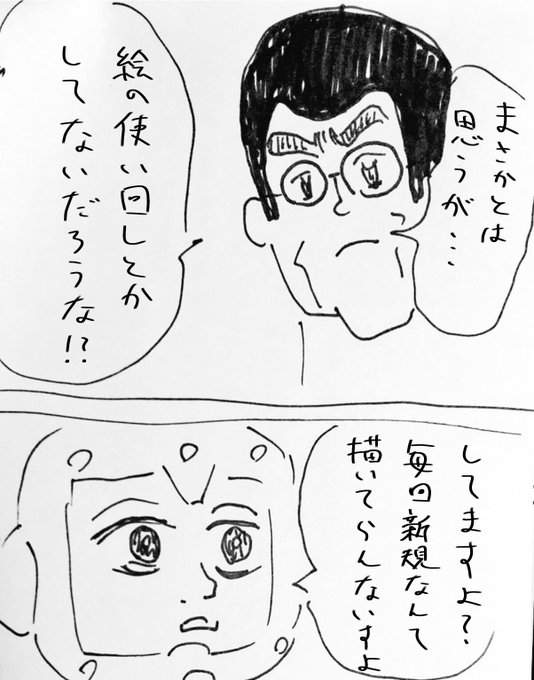 まさかとは
思うが、…
絵の使い回しとか
してないだろうな!?
してますよ?
毎回新規なんて
描いてらんないすよ